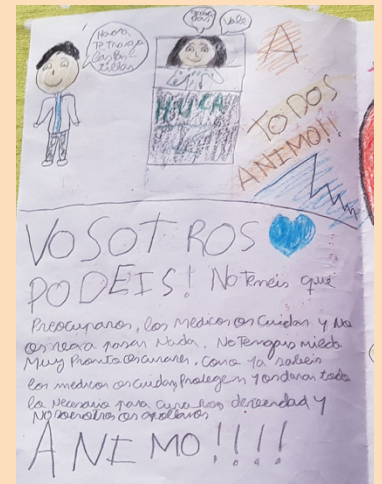 Ahora
Te traigo
las Pas-
tillas
Gracias
Vale
HUCA
A
TODOS
ANIMO!!
VOSOTROS
PODEIS! No teneis que
Preocuparos, los medicos os Cuidan y No
os va a pasar Nada. No Tengais miedo
Muy Pronto os curareis. Como ya sabeis
los medicos os cuidan, Protegen y os daran todo
lo Necesario para curaros,
y
NOSOTROS os apollamos
ANIMO!!!!